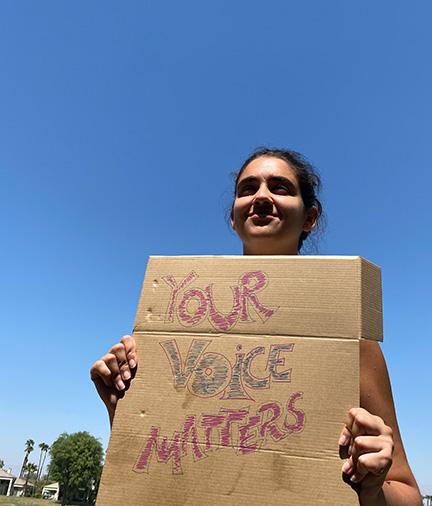 YOUR
VOiCE
MATTERS